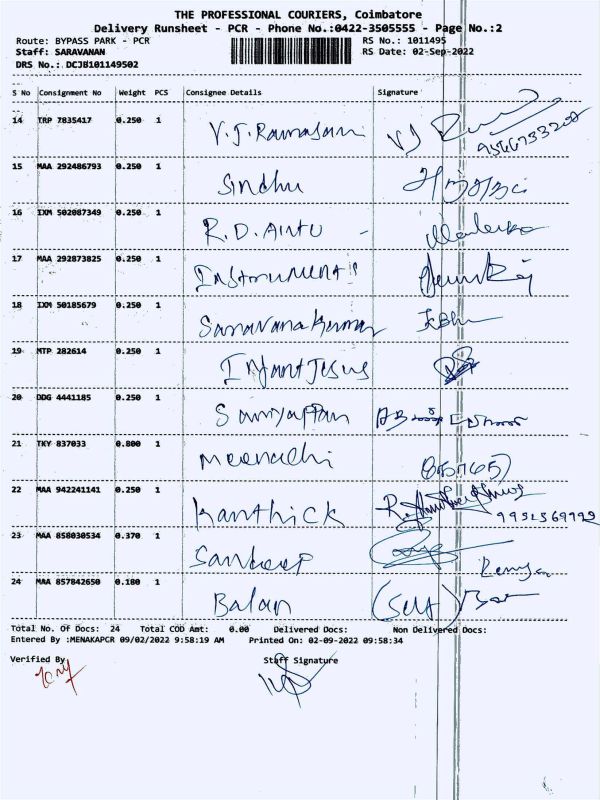 THE PROFESSIONAL COURIERS, Coimbatore
Delivery Runsheet - PCR - Phone No.:0422-3505555 - Page No.:2
Route: BYPASS PARK - PCR RS No.: 1011495
Staff: SARAVANAN RS Date: 02-Sep-2022
DRS No.: DCJB101149502
S No Consignment No Weight PCS Consignee Details Signature
14 TRP 7835417 0.250 1 V.J. Ramasami
15 MAA 292486793 0.250 1 Sindhu
16 IXM 502087349 0.250 1 R.D.
17 MAA 292873825 0.250 1 Instruments
18 IXM 50185679 0.250 1 Saravana Kumar
19 MTP 282614 0.250 1 Infant Jesus
20 DDG 4441185 0.250 1
21 TKY 837033 0.800 1 Meenachi
22 MAA 942241141 0.250 1 Karthick
23 MAA 858030534 0.370 1 Sandeep
24 MAA 857842650 0.180 1 Balan (Self)
Total No. Of Docs: 24 Total COD Amt: 0.00 Delivered Docs: Non Delivered Docs:
Entered By :MENAKAPCR 09/02/2022 9:58:19 AM Printed On: 02-09-2022 09:58:34
Verified By Staff Signature